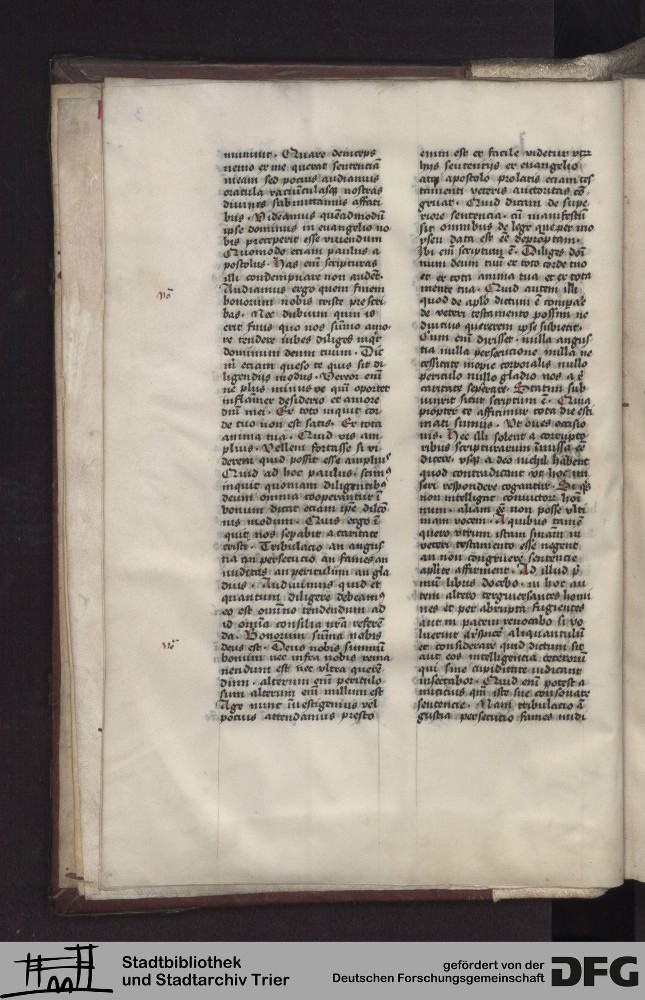 muniuit. Quare deinceps
nemo ex me querat sentenciā
meam sed pocius audiamus
oracula raciūculasq nostras
diuinis submittamus affati
bus. Videamus quēadmodū
ipse dominus in euangelio no
bis preceperit esse viuendum
Quomodo eciam paulus a
postolus. Has em̄ scripturas
illi condempnare non audēt.
Audiamus ergo quem finem
bonorum nobis criste prescri
bas. Nec dubium quin is
erit finis quo nos sūmo amo
re tendere iubes diliges inqt
dominum deum tuum. Dic
m̄ eciam queso te quis sit di
ligendius modus. Vereor em̄
ne plus minus ve quā oportet
inflāmer desiderio et amore
dn̄i mei. Ex toto inquit cor
de tuo non est satis. Ex tota
anima tua. Quid vis am
plius. Vellem fortasse si vi
derem quid possit esse amplius
Quid ad hoc paulus. scimꝰ
inquit quoniam diligentibꝰ
deum omnia cooperantur ī
bonum dicat eciam ipe dilcōnis
modum. Quis ergo ī
quit nos sepabit a caritate
cristi. Tribulacio an angus
tia an persecucio an fames an
nuditas an periculum an gla
dius. Audiuimus quid et
quantum diligere debeamꝰ
eo est omnīo tendendum ad
id omīa consilia nrā referē
da. Bonorum sūma nobis
deus est. Deus nobis summū
bonum nec infra nobis rema
nendum est nec vltra querē
dum. alterum em̄ periculo
sum alterum em̄ nullum est
Age nunc īuestigemus vel
pocius attendamus presto
nō
nō
enim est et facile videtur vtrū
hiis sentenciis ex euangelio
atq apostolo prolatis eciam tes
tamenti veteris auctoritas cō
gruat. Quid dicam de supe
riore sentencia. cū manifestū
sit omnibus de lege que per mo
ysen data est eē depromptam.
Ibi em̄ scriptum ē. Diliges domi
num deum tuū ex toto corde tuo
et ex tota anima tua et ex tota
mente tua. Quid autem illi
quod de aplo dictum ē comparē
de veteri testamento possim ne
diucius quererem ipse subiecit.
Cum em̄ dixisset. nulla angus
tia nulla persecucione nulla ne
cessitate inopie corporalis nullo
periculo nullo gladio nos a x̄
caritate separare. Statim sub
iunxit sicut scriptum ē. Quia
propter te afficimur tota die esti
mati sumus. Vt oues occisio
nis. Hec illi solent a corrupto
ribus scripturarum īmissa eē
dicere. vsq adeo nichil habent
quod contradicant vt hoc mi
seri respondere cogantur. Si qs
non intelligat conuictor̄ homi
num. aliam eē non posse vlti
mam vocem. A quibus tamē
quero vtrum istam sniam in
veteri testamento esse negent
an non congruere sentencie
aplice affirment. Ad illud p̄
mū libris docebo. in hoc au
tem altero tergiuersantes homi
nes et per abrupta fugientes
aut in pacem reuocabo si vo
luerint respicere aliquantulū
et considerare quid dictum sit
aut eos intelligencia ceterorū
qui sine cupiditate iudicant
insectabor. Quid enim potest a
micicius qm̄ iste sue consonare
sentencie. Nam tribulacio ā
gustia persecucio fames nudi
Stadtbibliothek
und Stadtarchiv Trier
gefördert von der
Deutschen Forschungsgemeinschaft
DFG